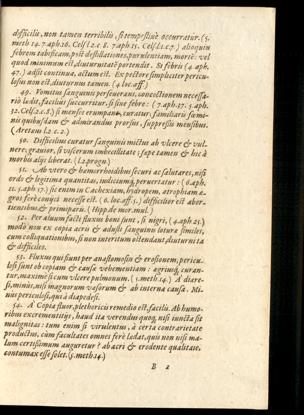 difficilis, non tamen terribilis, si tempestiuè occurratur. (5.
meth. 14. 7 aph. 26. Cels l. 2. c. 8. 7 aph 15. Cels l. 1. c. 7.) alioquin
febrem tabificam, pòst destillationes, purulentiam, mortē: vel
quod minimum est, diuturnitatē portendit. Si febris (4. aph.
47.) adsit continua, actum est. Ex pectore simpliciter pericu-
losus non est, diuturnus tamen. (4. loc. aff.)
49. Vomitus sanguinis perseuerans, concoctionem necessa-
riò ledit, facilius succurritur, si sine febre: (7 aph. 37. 5. aph.
32. Cels. 2. c. 8.) si menses erumpant, curatur. familiaris fœmi-
nis quibusdam & admirandus prorsus, suppressis mensibus.
(Aretæus l. 2. c. 2.)
50. Difficilius curatur sanguinis mictus ab vlcere & vul-
nere: grauior, si viscerum imbecillitate; sæpe tamen & hic à
morbis alijs liberat. (l. 2. progn.)
51. Ab vtero & hæmorrhoidibus securi ac salutares, nisi
ordo & legitima quantitas, iudiciumq́; peruertatur: (6. aph.
11. 5. aph. 57.) sic enim in Cachexiam, hydropem, atrophiam æ-
gros ferè conijci necesse est. (6. loc. aff. 5.) difficilior est abor-
tientibus & primiparis. (Hipp. de mor. mul.)
52. Per aluum facti fluxus boni sunt, si nigri, (4 aph. 21.)
modò non ex copia acris & adusti sanguinis lotura similes,
cum colliquationibus, si non intertum ostendant diuturni ta
& difficiles.
53. Fluxus qui sunt per anastomosin & erosionem, pericu-
losi sunt ob copiam & causæ vehementiam: ægrimq́; curan-
tur, maximè si cum vlcere pulmonum. (5. meth. 14.) A diære-
si, minùs, nisi magnorum vasorum & ab interna causa. Mi-
nus periculosi, qui à diapedesi.
54. A Copia fluor, plethoricis remedio est, facilis. Ab humo-
ribus excrementitijs, haud ita verendus quoq́; nisi iuncta sit
malignitas: tum enim si virulentus, à certa contrarietate
productus, cum facultates omnes ferè lædat, quis non nisi ma-
lum certissimum auguretur? ab acri & erodente qualitate,
contumax esse solet. (5. meth. 14.)
B 2